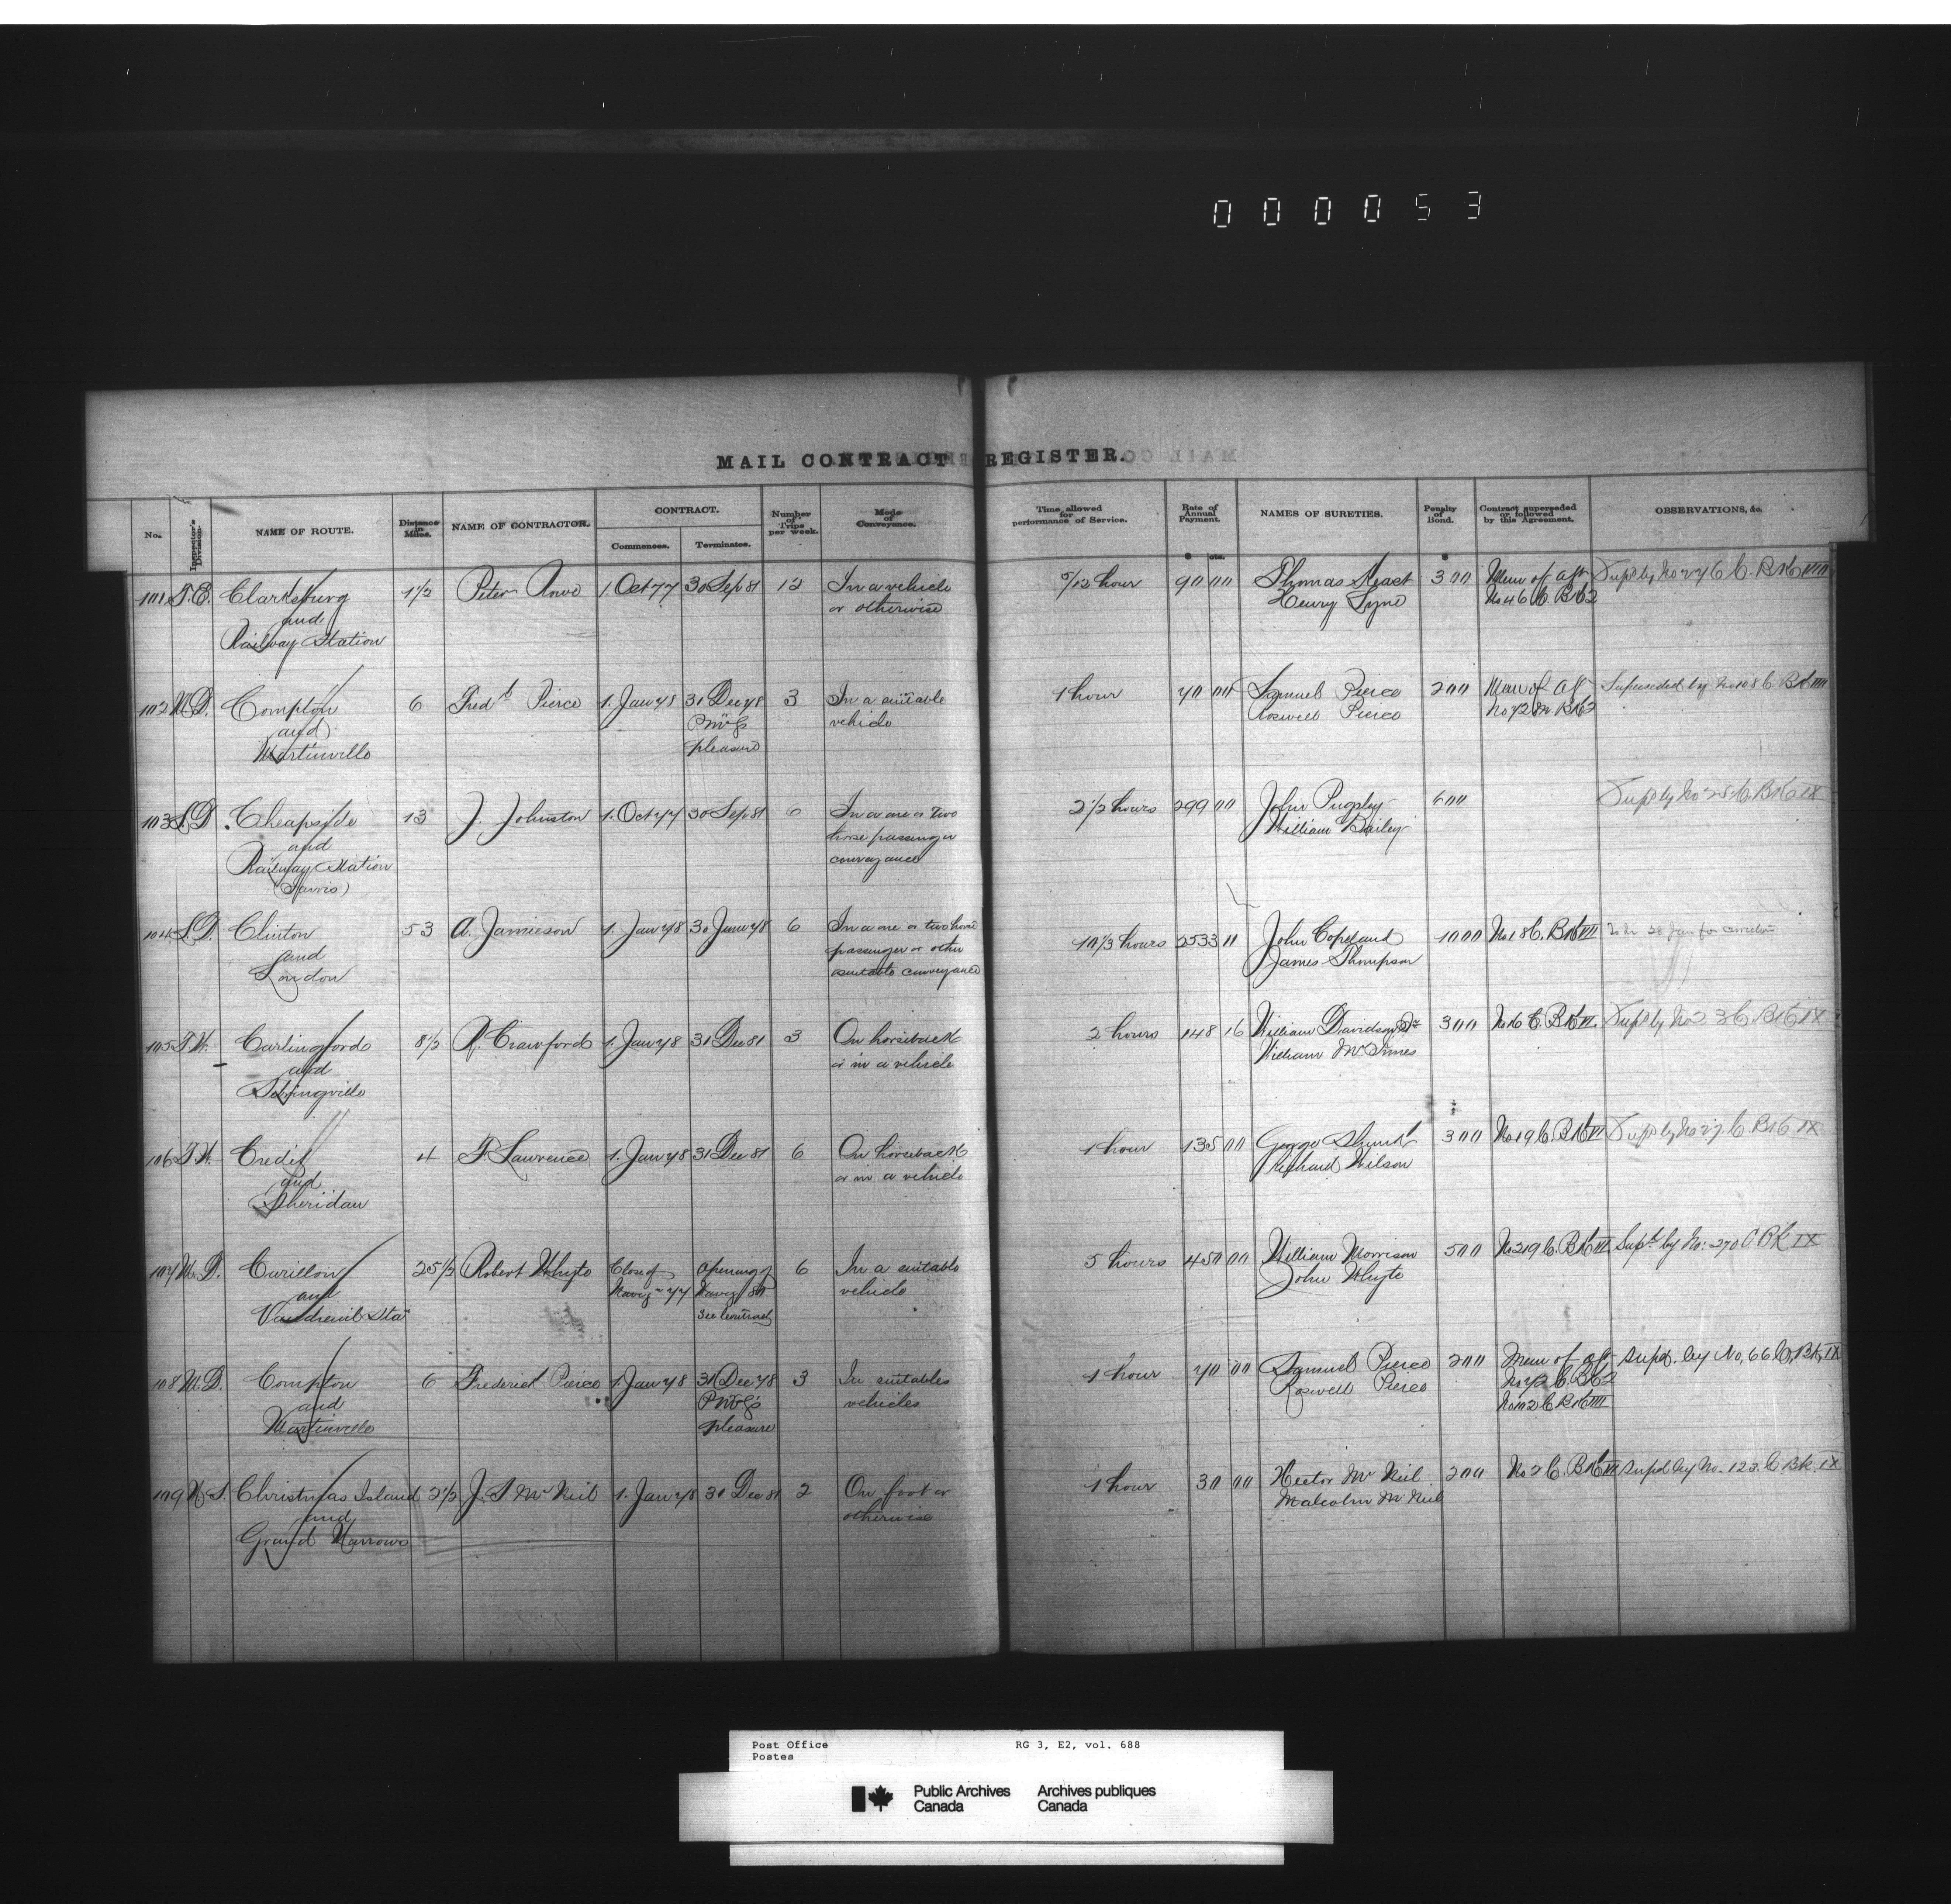 000053
MAIL CONTRACT REGISTER.
No. Inspector's Division. NAME OF ROUTE. Distance in Miles. NAME OF CONTRACTOR. CONTRACT. Commences. Terminates. Number of Trips per week. Mode of Conveyance. Time allowed for performance of Service. Rate of Annual Payment. NAMES OF SURETIES. Penalty of Bond. Contract superseded or followed by this Agreement. OBSERVATIONS, &c.
$ cts. $
101 T.E. Clarksburg 1½ Peter Rowe 1 Oct 77 30 Sep 81 12 In a vehicle 5/12 hour 90 00 Thomas 300 Mem of agt Supd by No 276 C. Bk VIII
and or otherwise Henry Syne No 46 C. Bk 2
Railway Station
102 M.D. Compton 6 Fredk Pierce 1. Jan 78 31 Dec 78 3 In a suitable 1 hour 70 00 Samuel Pierce 200 Mem of agt Superseded by No 108 C Bk VIII
and PMG's vehicle Roswell Pierce No 72 M Bk 2
Martinville pleasure
103 L.D. Cheapside 13 J. Johnston 1. Oct 77 30 Sep 81 6 In a one or two 2½ hours 299 00 John Pugsley 600 Supd by No 25 C. Bk IX
and horse passenger William Bailey
Railway Station conveyance
(Jarvis)
104 L.D. Clinton 53 A. Jamieson 1. Jan 78 30 June 78 6 In a one or two horse 10⅓ hours 2533 11 John Copeland 1000 No 18 C. Bk VII
and passenger or other James Thompson
London suitable conveyance
105 T.W. Carlingford 8½ R. Crawford 1. Jan 78 31 Dec 81 3 On horseback 2 hours 148 16 William Davidson Jr 300 No 16 C. Bk VI Supd by No 23 C. Bk IX
and or in a vehicle William
Sebringville
106 T.W. Credit 4 F. Lawrence 1. Jan 78 31 Dec 81 6 On horseback 1 hour 135 00 George 300 No 19 C. Bk VI Supd by No 27 C Bk IX
and or in a vehicle Richard Wilson
Sheridan
107 M.D. Carillon 25½ Robert Whyte Close of opening of 6 In a suitable 5 hours 450 00 William Morrison 500 No 219 C. Bk VI Supd by No: 270 C Bk IX
and Navign 77 Navign vehicle John Whyte
Vaudreuil Sta See Contract
108 M.D. Compton 6 Frederick Pierce 1. Jan 78 31 Dec 78 3 In suitable 1 hour 70 00 Samuel Pierce 200 Mem of agt Supd. by No, 66 C, Bk, IX
and PMG's vehicles Roswell Pierce No 72 C. Bk 2
Martinville pleasure No 102 C Bk VIII
109 N.S. Christmas Island 2½ J. S McNeil 1. Jan 78 31 Dec 81 2 On foot or 1 hour 30 00 Hector McNeil 200 No 2 C. Bk VI Supd by No. 123. C Bk. IX
and otherwise Malcolm McNeil
Grand Narrows
Post Office RG 3, E2, vol. 688
Postes
Public Archives Archives publiques
Canada Canada